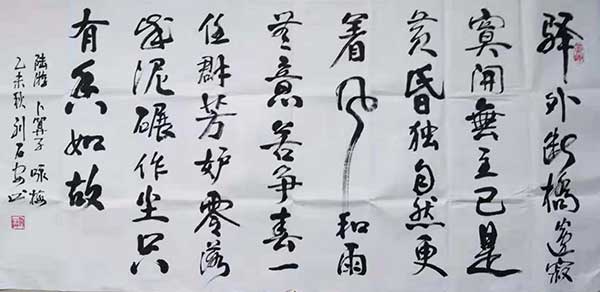 驿外断橋邊寂
寞開無主已是
黄昏独自愁更
着风和雨
無意苦争春一
任群芳妒零落
成泥碾作尘只
有香如故
陆游 卜算子 咏梅
乙未秋刘石安书